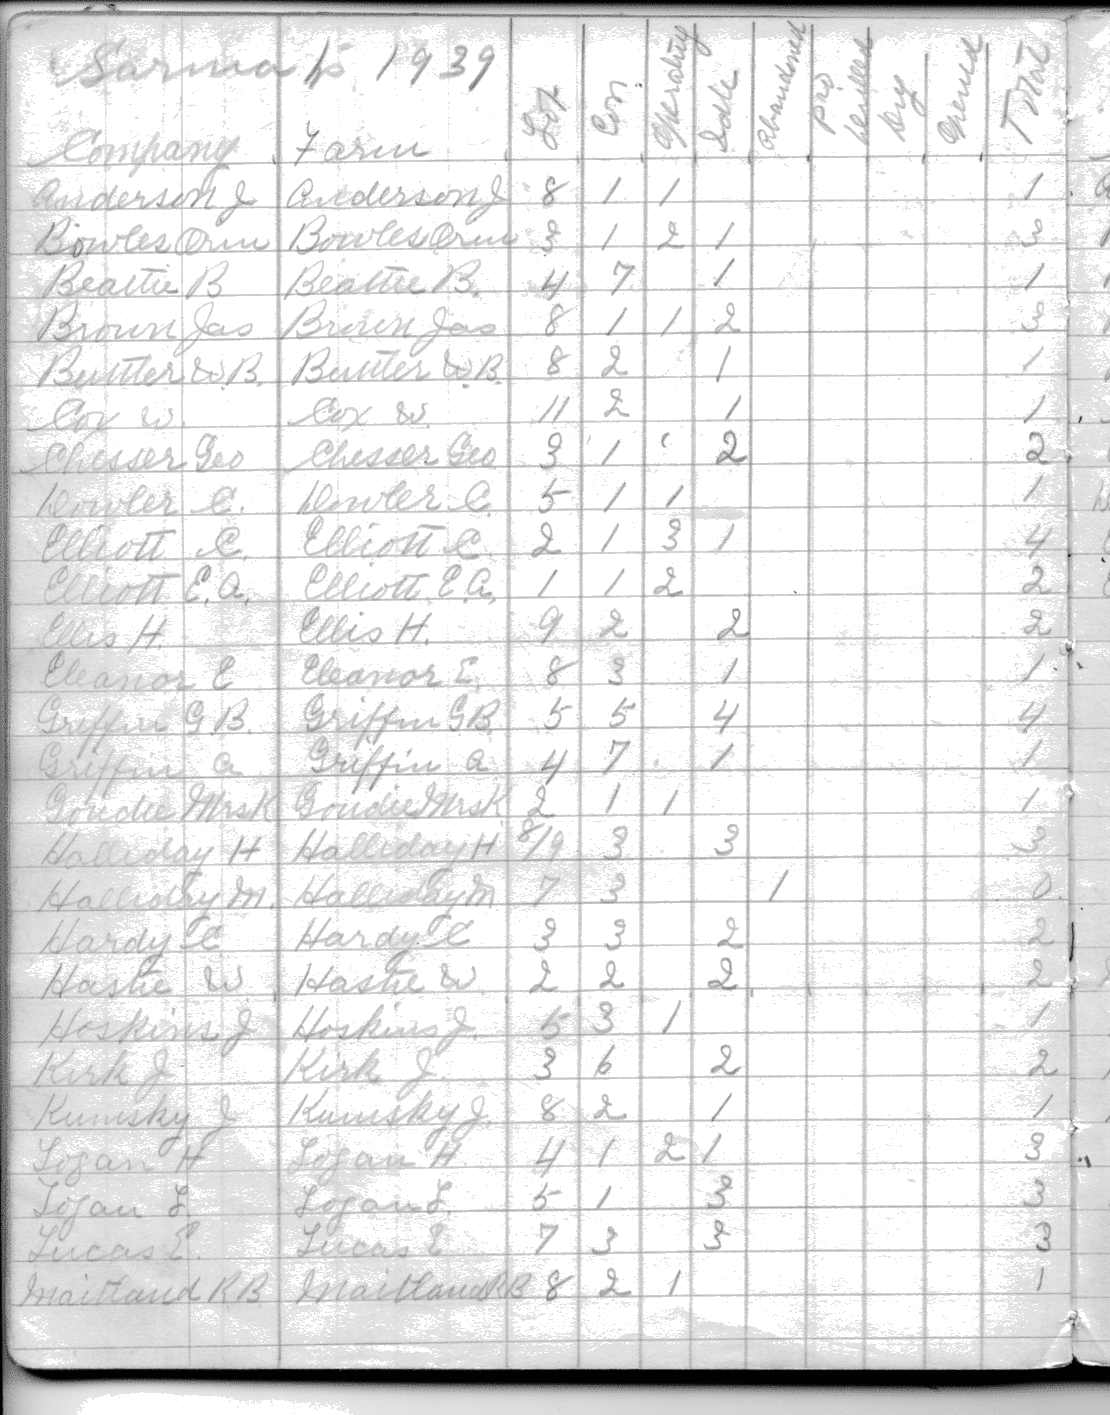 Sarnia Tp 1939
Company Farm Lot Con. Operating Idle Abandoned Pro Drilled Dry Opened Total
Anderson J Anderson J 8 1 1 1
Bowles Orm Bowles Orm 3 1 2 1 3
Beattie B Beattie B. 4 7 1 1
Brown Jas Brown Jas 8 1 1 2 3
Buttler W.B. Buttler W.B. 8 2 1 1
Cox W. Cox W. 11 2 1 1
Chesser Geo Chesser Geo 3 1 2 2
Dowler C. Dowler C. 5 1 1 1
Elliott C. Elliott C. 2 1 3 1 4
Elliott E.A. Elliott E.A. 1 1 2 2
Ellis H. Ellis H. 9 2 2 2
Eleanor E Eleanor E. 8 3 1 1
Griffin G B. Griffin G B. 5 5 4 4
Griffin A Griffin A 4 7 1 1
Goudie Mrs K Goudie Mrs K. 2 1 1 1
Halliday H Halliday H 8/9 3 3 3
Halliday M. Halliday M 7 3 1 0
Hardy C Hardy C 3 3 2 2
Hastie W. Hastie W 2 2 2 2
Hoskins J Hoskins J. 5 3 1 1
Kirk J Kirk J. 3 6 2 2
Kumsky J Kumsky J. 8 2 1 1
Logan H Logan H 4 1 2 1 3
Logan L. Logan L. 5 1 3 3
Lucas E. Lucas E 7 3 3 3
Maitland R.B. Maitland R B 8 2 1 1